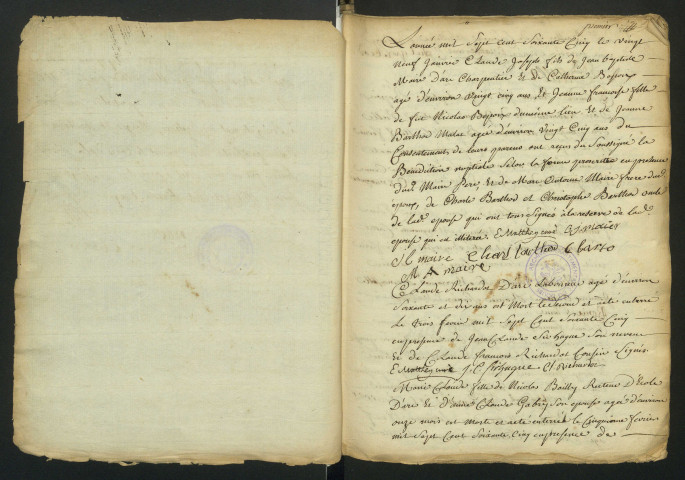 premier
L'année mil Sept cent Soixante Cinq le vingt
neuf Janvier Claude Joseph fils de Jean baptiste
Maire d'arc Charpentier Et de Catherine Bepoix
agé d'environ vingt cinq ans Et Jeanne francoise fille
de feu Nicolas Bepoix dumême lieu Et de Jeanne
Barthod Malat agée d'environ Vingt Cinq ans du
Consentement de leurs parens ont reçus du Soussigné la
Benediction nuptiale Selon la forme prescritte en presence
dud. Maire Pere, Et de Marc Antoine Maire frere dud.
epoux, de Charle Barthod et Christophe Barthod oncle
de lad. epouse qui ont tous Signés à la reserve de lad.
epouse qui est illiterée
maire Charl barthod
M A maire
Claude Richardot D'arc Laboureur agé d'environ
Soixante et dix ans est Mort le Second et a eté enterré
Le trois fevrier mil Sept Cent Soixante Cinq
en presence de Jean Claude Son neveu
Et de Claude francois Richardot Cousin Signés
Marie Claude fille de Nicolas Bailly Recteur D'Ecole
D'arc Et d'anne Claude Son epouse agée d'environ
onze mois est Morte et a eté enterrée le Cinquieme fevrier
mil Sept Cent Soixante Cinq en presence de